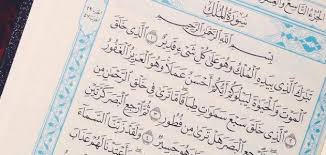 الجزء التاسع والعشر
سُورَةُ الْمُلْكِ
بِسْمِ اللَّهِ الرَّحْمَٰنِ الرَّحِيمِ
تَبَٰرَكَ الَّذِي بِيَدِهِ الْمُلْكُ وَهُوَ عَلَىٰ كُلِّ شَيْءٍ قَدِيرٌ ١ الَّذِي خَلَقَ
الْمَوْتَ وَالْحَيَوٰةَ لِيَبْلُوَكُمْ أَيُّكُمْ أَحْسَنُ عَمَلًا وَهُوَ الْعَزِيزُ الْغَفُورُ
٢ الَّذِي خَلَقَ سَبْعَ سَمَٰوَٰتٍ طِبَاقًا مَّا تَرَىٰ فِي خَلْقِ الرَّحْمَٰنِ مِن
فَارْجِعِ الْبَصَرَ هَلْ تَرَىٰ مِن فُطُورٍ ٣ ثُمَّ ارْجِعِ الْبَصَرَ كَرَّتَيْنِ
وَهُوَ حَسِيرٌ ٤ وَلَقَدْ زَيَّنَّا السَّمَاءَ
وَأَعْتَدْنَا لَهُمْ عَذَابَ